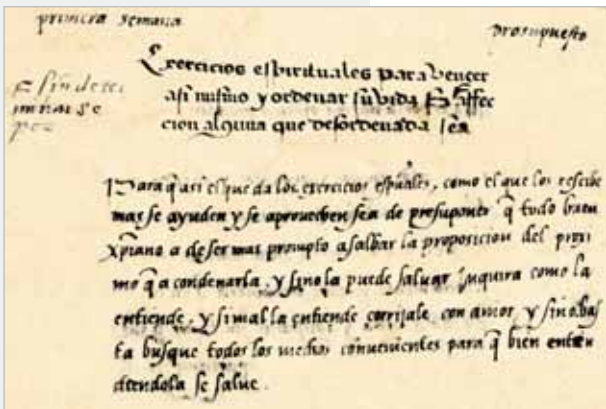 primera semana
prosupuesto
Exercicios espirituales para vencer
a si mismo y ordenar su vida
& sin deter
minarse
por
affec
cion alguna que desordenada sea
Para q̄ assi el que da los exercicios espūales, como el que los rescibe
mas se ayuden y se aprovechen sea de presuponer q̄ todo buen
xp̄iano a de ser mas prompto a salbar la proposicion del proxi
mo q̄ a condenarla. y si no la puede salvar inquira como la
entiende. y si mal la entiende corrijale con amor y si no bas
ta busque todos los medios convenientes para q̄ bien enten
diendola se salve.